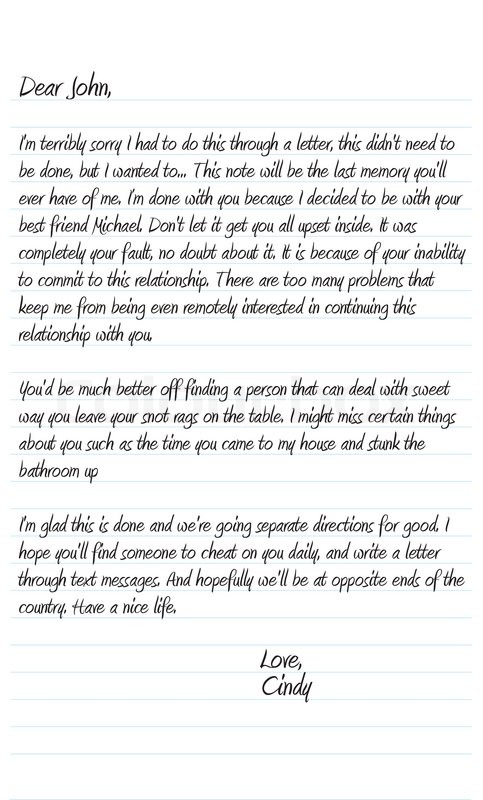 Dear John,
I'm terribly sorry I had to do this through a letter, this didn't need to
be done, but I wanted to... This note will be the last memory you'll
ever have of me. I'm done with you because I decided to be with your
best friend Michael. Don't let it get you all upset inside. It was
completely your fault, no doubt about it. It is because of your inability
to commit to this relationship. There are too many problems that
keep me from being even remotely interested in continuing this
relationship with you.
You'd be much better off finding a person that can deal with sweet
way you leave your snot rags on the table. I might miss certain things
about you such as the time you came to my house and stunk the
bathroom up
I'm glad this is done and we're going separate directions for good. I
hope you'll find someone to cheat on you daily, and write a letter
through text messages. And hopefully we'll be at opposite ends of the
country. Have a nice life.
Love,
Cindy